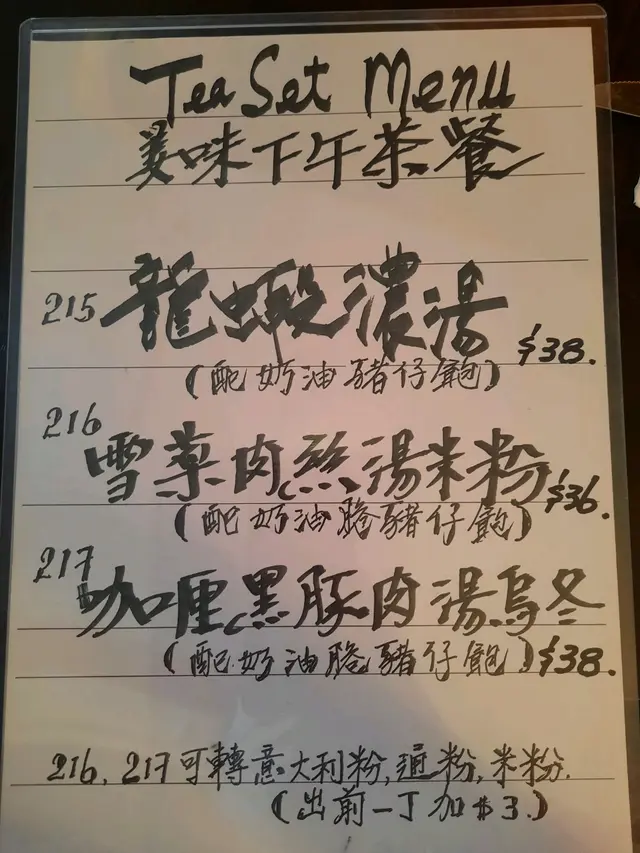 Tea Set Menu
美味下午茶餐
215 龍蝦濃湯 $38.
(配奶油豬仔飽)
216 雪菜肉絲湯米粉 $36.
(配奶油脆豬仔飽)
217 咖喱黑豚肉湯烏冬
(配奶油脆豬仔飽) $38.
216, 217可轉意大利粉, 通粉, 米粉.
(出前一丁加$3.)